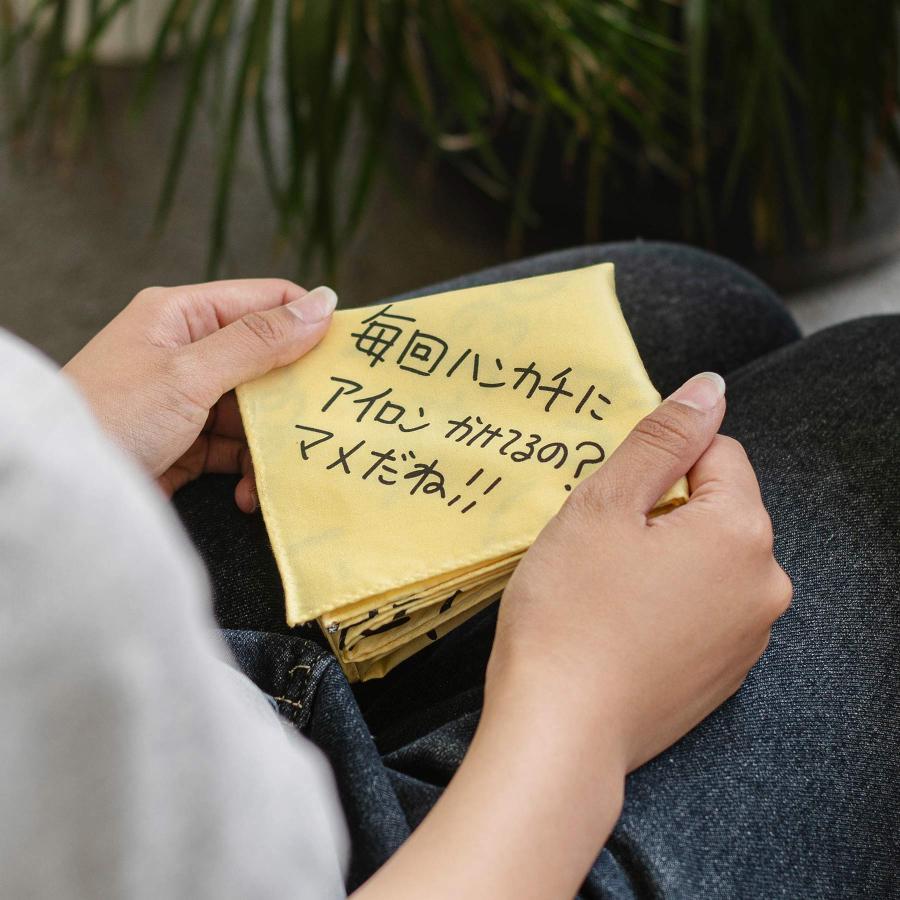 毎回ハンカチに
アイロン かけてるの?
マメだね!!